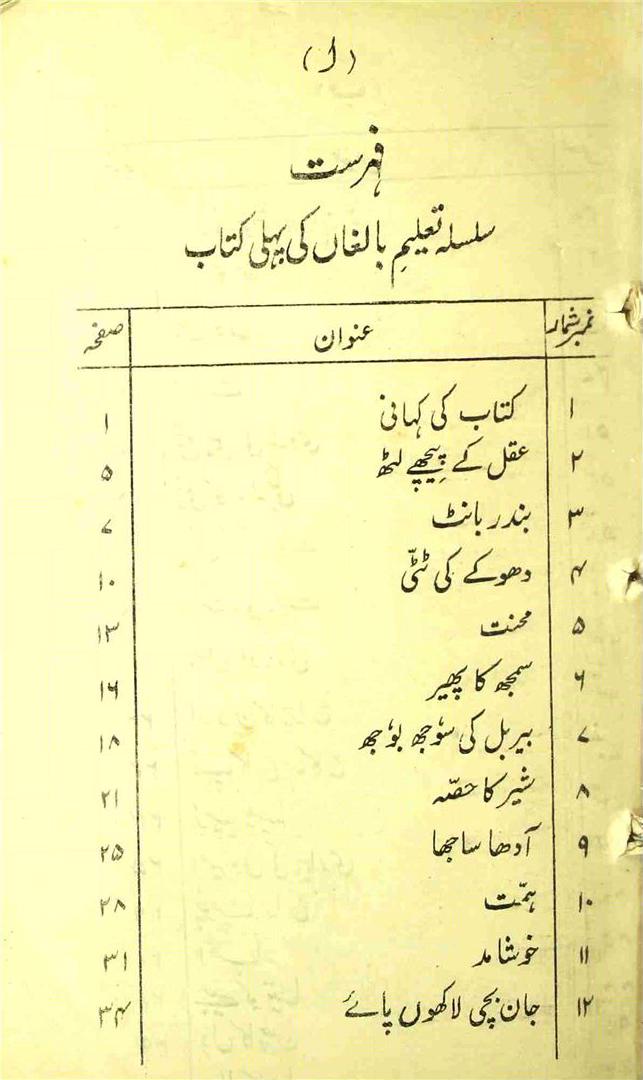 (ا)
فہرست
سلسلہ تعلیمِ بالغاں کی پہلی کتاب
نمبرشمار عنوان صفحہ
۱ کتاب کی کہانی ۱
۲ عقل کے پیچھے لٹھ ۵
۳ بندر بانٹ ۷
۴ دھوکے کی ٹٹّی ۱۰
۵ محنت ۱۳
۶ سمجھ کا پھیر ۱۶
۷ بیربل کی سوٗجھ بوٗجھ ۱۸
۸ شیر کا حصّہ ۲۱
۹ آدھا ساجھا ۲۵
۱۰ ہمّت ۲۸
۱۱ خوشامد ۳۱
۱۲ جان بچی لاکھوں پائے ۳۴